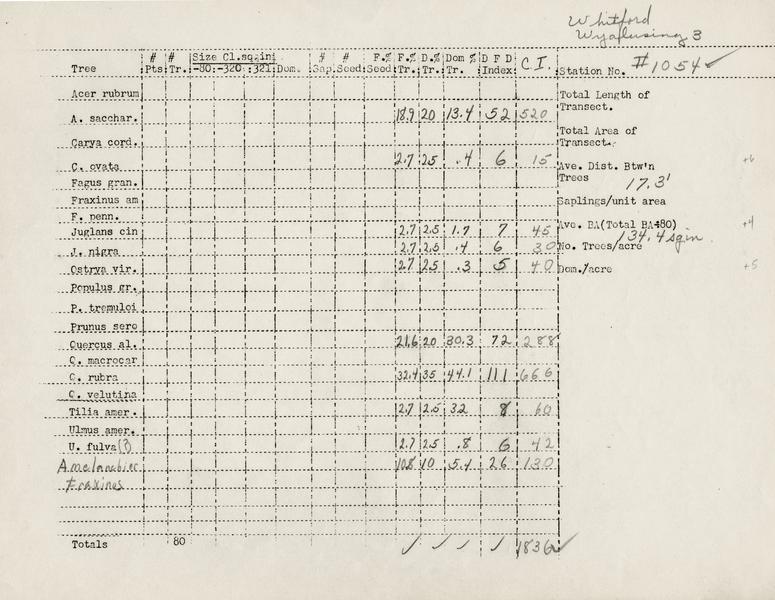 Whitford
Wyalusing 3
# # Size Cl.sqini # # F.% F.% D.% Dom % D F D C.I. Station No. #1054 ✓
Tree Pts. Tr. -80: -320: :321: Dom. Sap. Seed: Seed: Tr. Tr. Tr. Index:
Acer rubrum
Total Length of
Transect.
A. sacchar. 18.9 20 13.4 52 520
Total Area of
Transect.
Carya cord.
C. ovata 2.7 2.5 .4 6 15
Ave. Dist. Btw'n
Trees 17.3'
+6
Fagus gran.
Fraxinus am
Saplings/unit area
F. penn.
Juglans cin 2.7 2.5 1.7 7 45
Ave. BA(Total BA÷80)
134.4 sq in.
+4
J. nigra 2.7 2.5 .4 6 30
No. Trees/acre
Ostrya vir. 2.7 2.5 .3 5 40
Dom./acre
+5
Populus gr.
P. tremuloi
Prunus sero
Quercus al. 21.6 20 30.3 72 288
Q. macrocar
Q. rubra 32.4 35 44.1 111 666
Q. velutina
Tilia amer. 2.7 2.5 3.2 8 60
Ulmus amer.
U. fulva(?) 2.7 2.5 .8 6 42
Amelanchier 10.8 10 5.4 26 130
Fraxinus
Totals 80 ✓ ✓ ✓ ✓ 1836 ✓